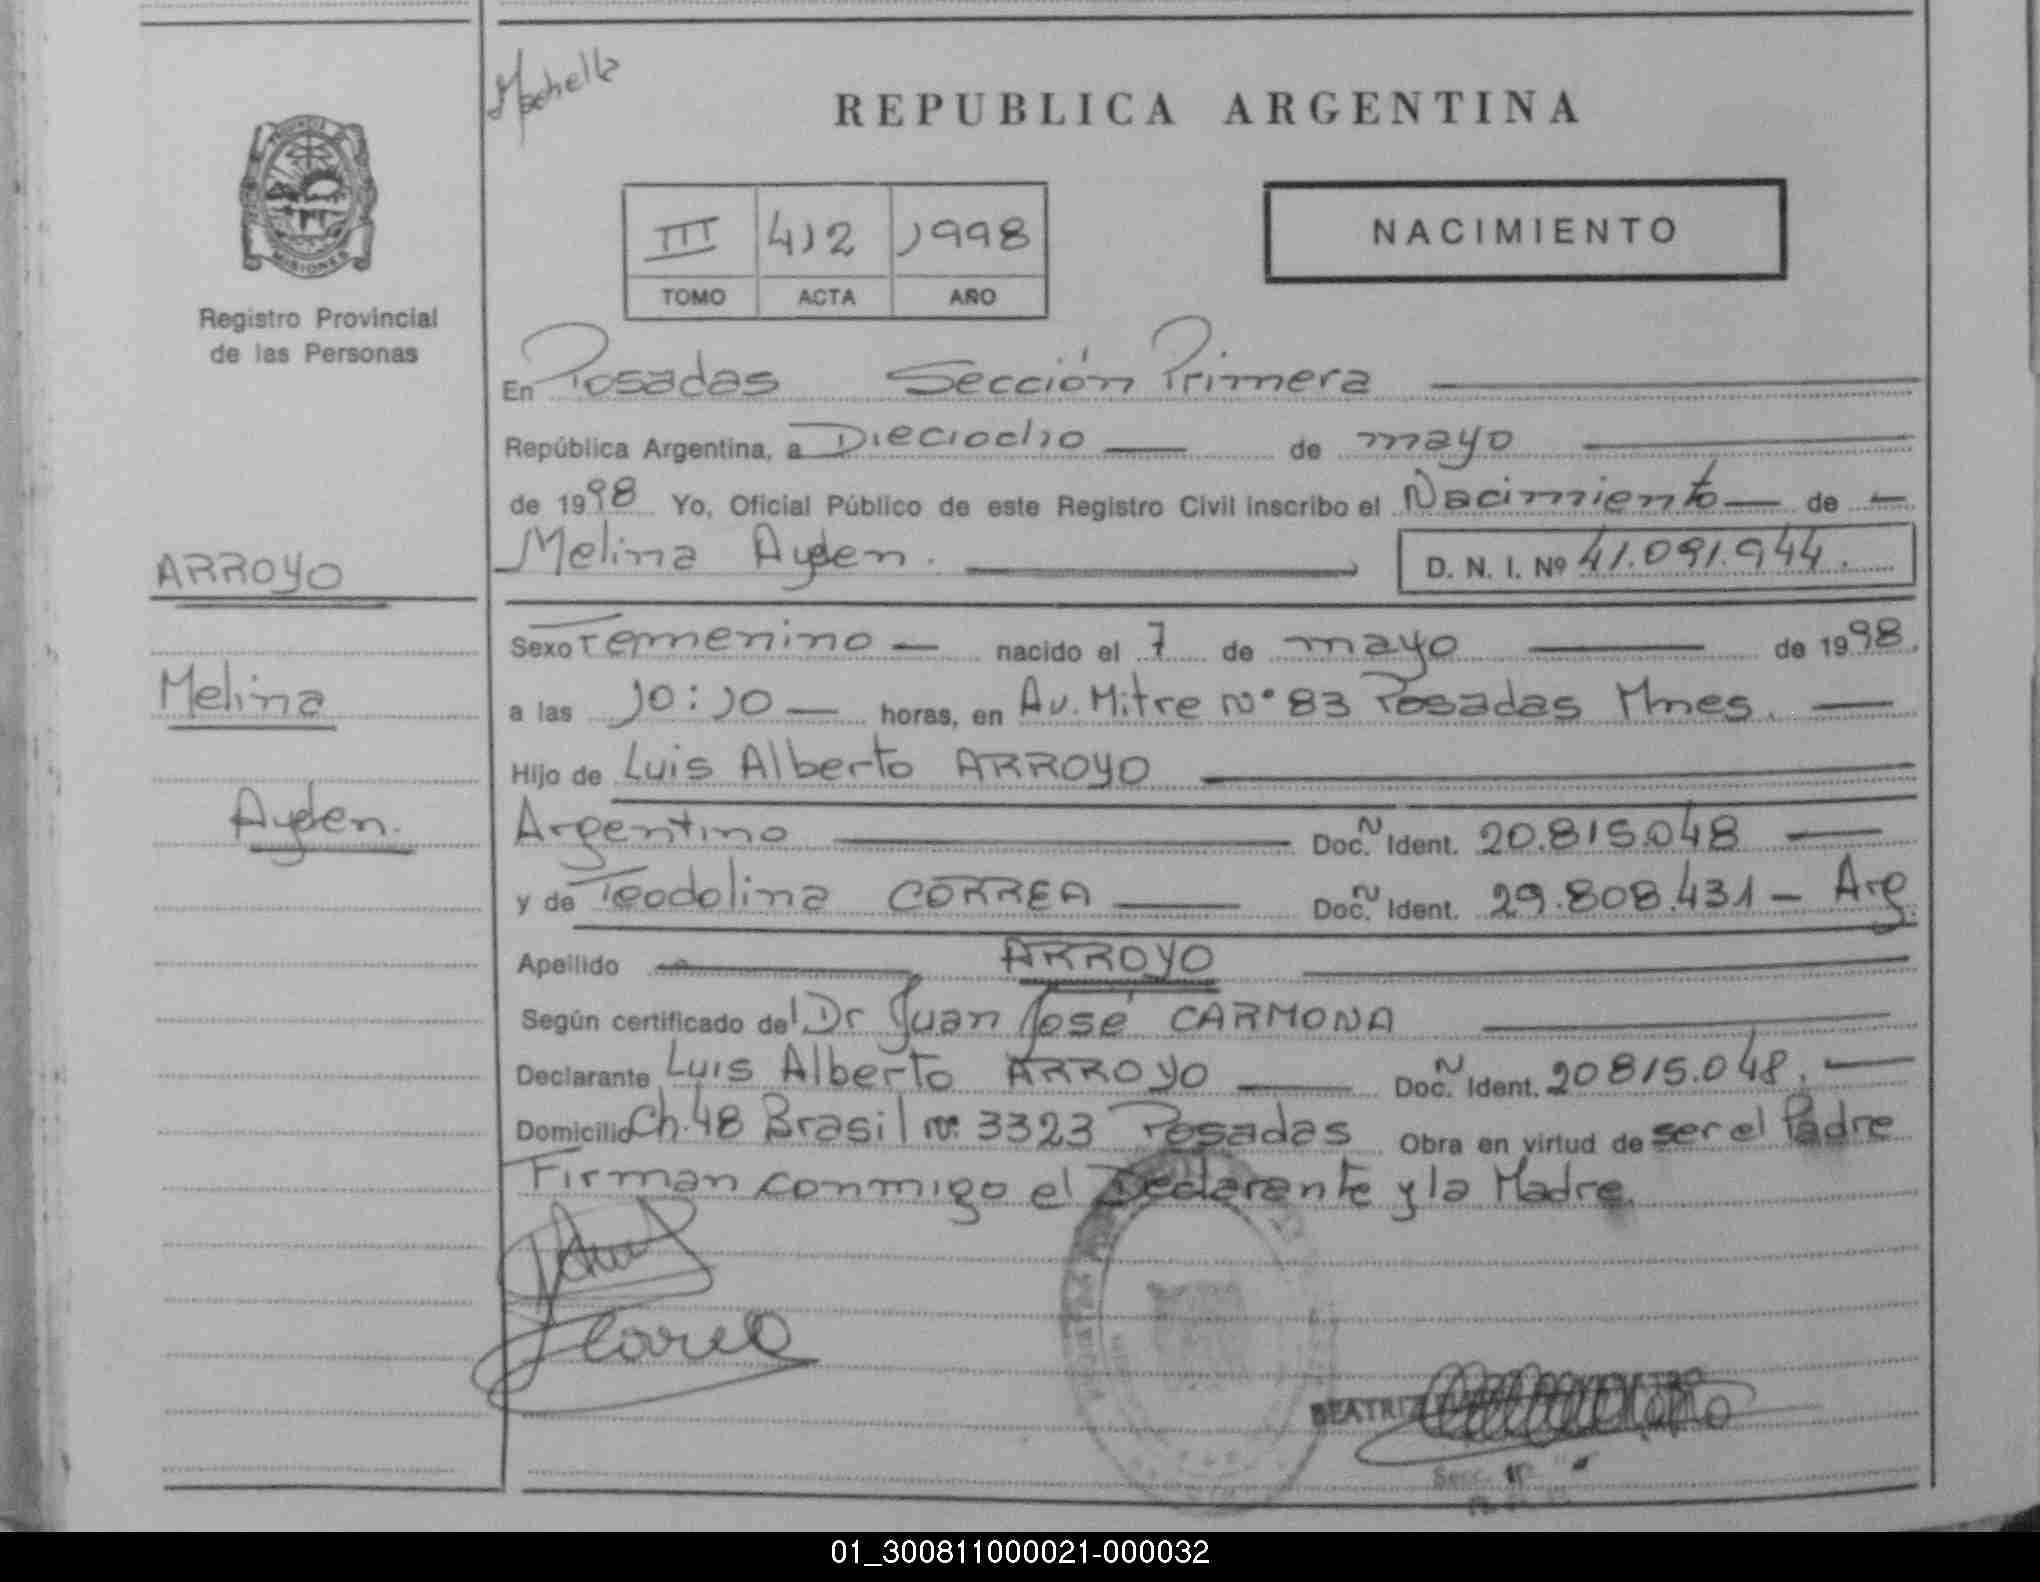 REPUBLICA ARGENTINA
PROVINCIA
MISIONES
Registro Provincial
de las Personas
III 412 1998
TOMO ACTA AÑO
NACIMIENTO
En Posadas Sección Primera
República Argentina, a Dieciocho de mayo
de 1998 Yo, Oficial Público de este Registro Civil inscribo el Nacimiento de
Melina Ayden. D. N. I. Nº 41.091.944.
ARROYO
Melina
Ayden.
Sexo Femenino nacido el 7 de mayo de 1998.
a las 10:10 horas, en Av. Mitre Nº 83 Posadas Mnes.
Hijo de Luis Alberto ARROYO
Argentino Doc. Ident. 20.815.048
y de Teodolina CORREA Doc. Ident. 29.808.431 - Arg.
Apellido ARROYO
Según certificado del Dr Juan José CARMONA
Declarante Luis Alberto ARROYO Doc. Ident. 20815.048.
Domicilio Ch. 48 Brasil Nº 3323 Posadas Obra en virtud de ser el Padre
Firman conmigo el Declarante y la Madre.
BEATRIZ
Secc.
01_300811000021-000032